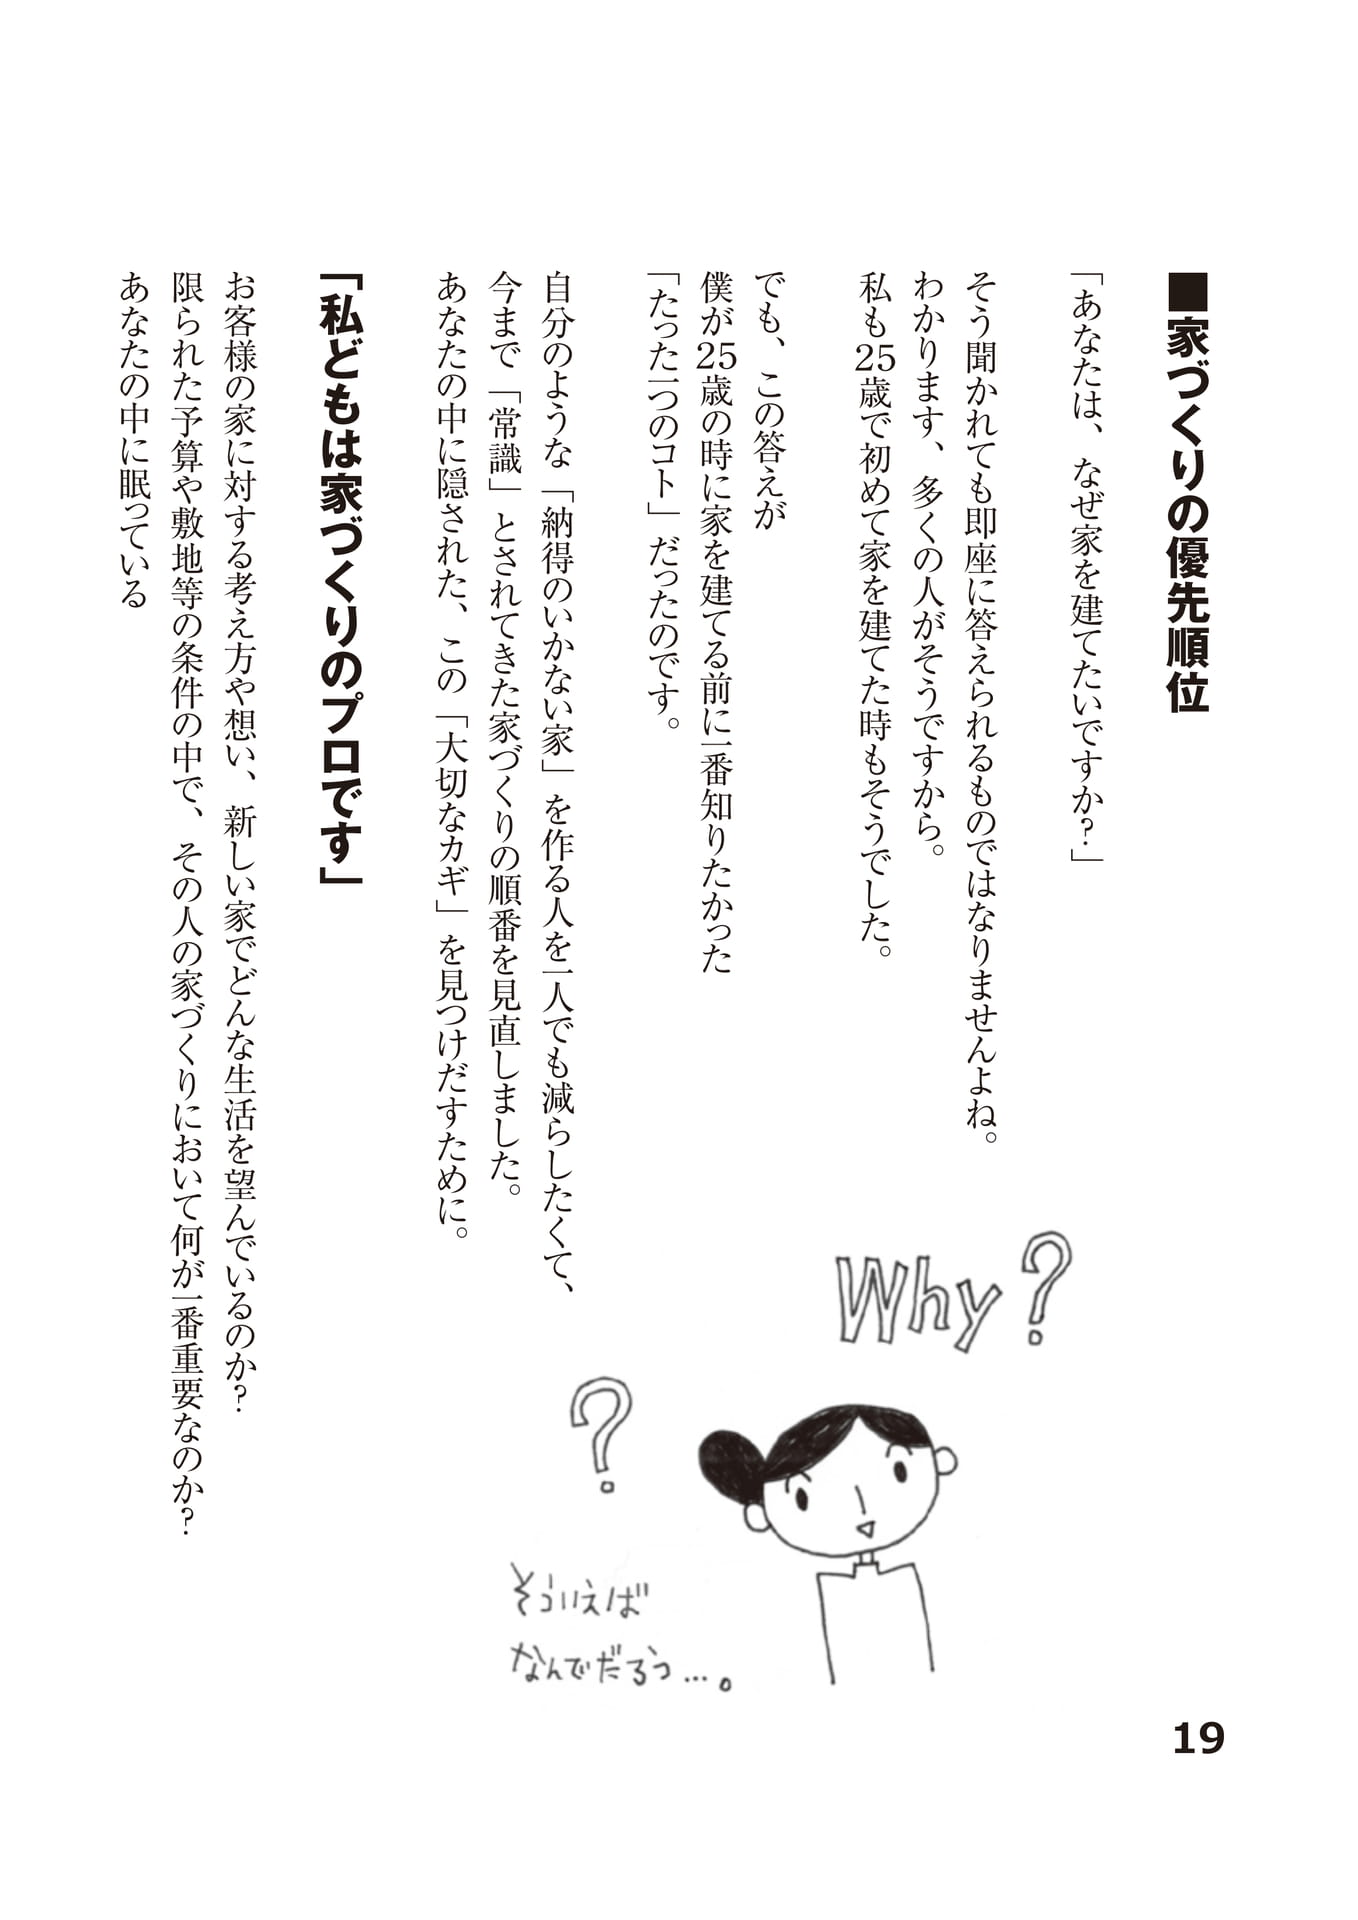 ■家づくりの優先順位
「あなたは、なぜ家を建てたいですか？」
そう聞かれても即座に答えられるものではなりませんよね。
わかります、多くの人がそうですから。
私も25歳で初めて家を建てた時もそうでした。
でも、この答えが
僕が25歳の時に家を建てる前に一番知りたかった
「たった一つのコト」だったのです。
自分のような「納得のいかない家」を作る人を一人でも減らしたくて、
今まで「常識」とされてきた家づくりの順番を見直しました。
あなたの中に隠された、この「大切なカギ」を見つけだすために。
「私どもは家づくりのプロです」
お客様の家に対する考え方や想い、新しい家でどんな生活を望んでいるのか？
限られた予算や敷地等の条件の中で、その人の家づくりにおいて何が一番重要なのか？
あなたの中に眠っている
Why?
?
そういえば
なんでだろう…。
19